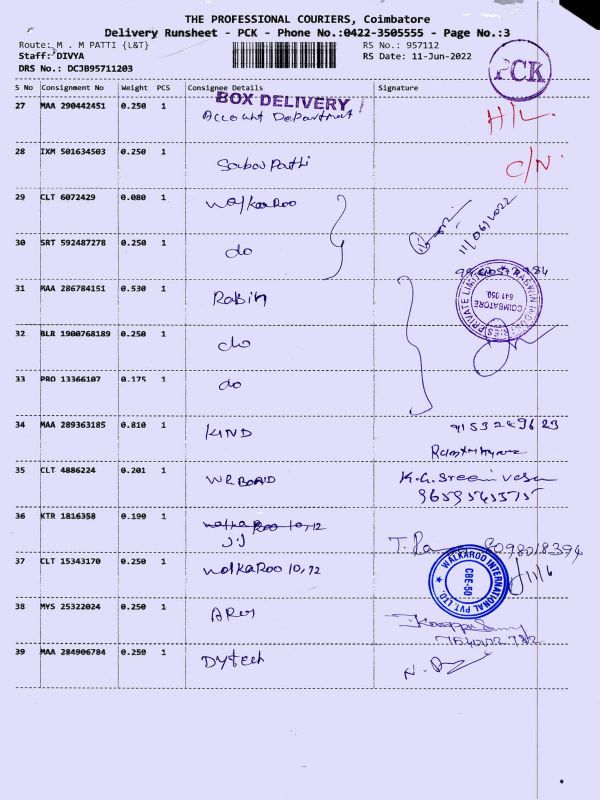 THE PROFESSIONAL COURIERS, Coimbatore
Delivery Runsheet - PCK - Phone No.:0422-3505555 - Page No.:3
Route: M . M PATTI {L&T} RS No.: 957112
Staff: DIVYA RS Date: 11-Jun-2022
DRS No.: DCJB95711203
PCK
S No Consignment No Weight PCS Consignee Details Signature
BOX DELIVERY
27 MAA 290442451 0.250 1 Account Department H/L.
28 IXM 501634503 0.250 1 SabaPathi C/N.
29 CLT 6072429 0.080 1 walkaroo
11/06/2022
30 SRT 592487278 0.250 1 do
31 MAA 286784151 0.530 1 Rabin
COIMBATORE
641 050.
32 BLR 1900768189 0.250 1 do
33 PRO 13366107 0.175 1 do
34 MAA 289363185 0.810 1 KIND
35 CLT 4886224 0.201 1 WRBOARD K.G.Sreenivasan
36 KTR 1816358 0.190 1 walkaRoo 10,12
JJ
T. 8098018394
37 CLT 15343170 0.250 1 walkaRoo 10,12
WALKAROO INTERNATIONAL PVT LTD.
CBE-50
11/6
38 MYS 25322024 0.250 1
39 MAA 284906784 0.250 1 Dytech